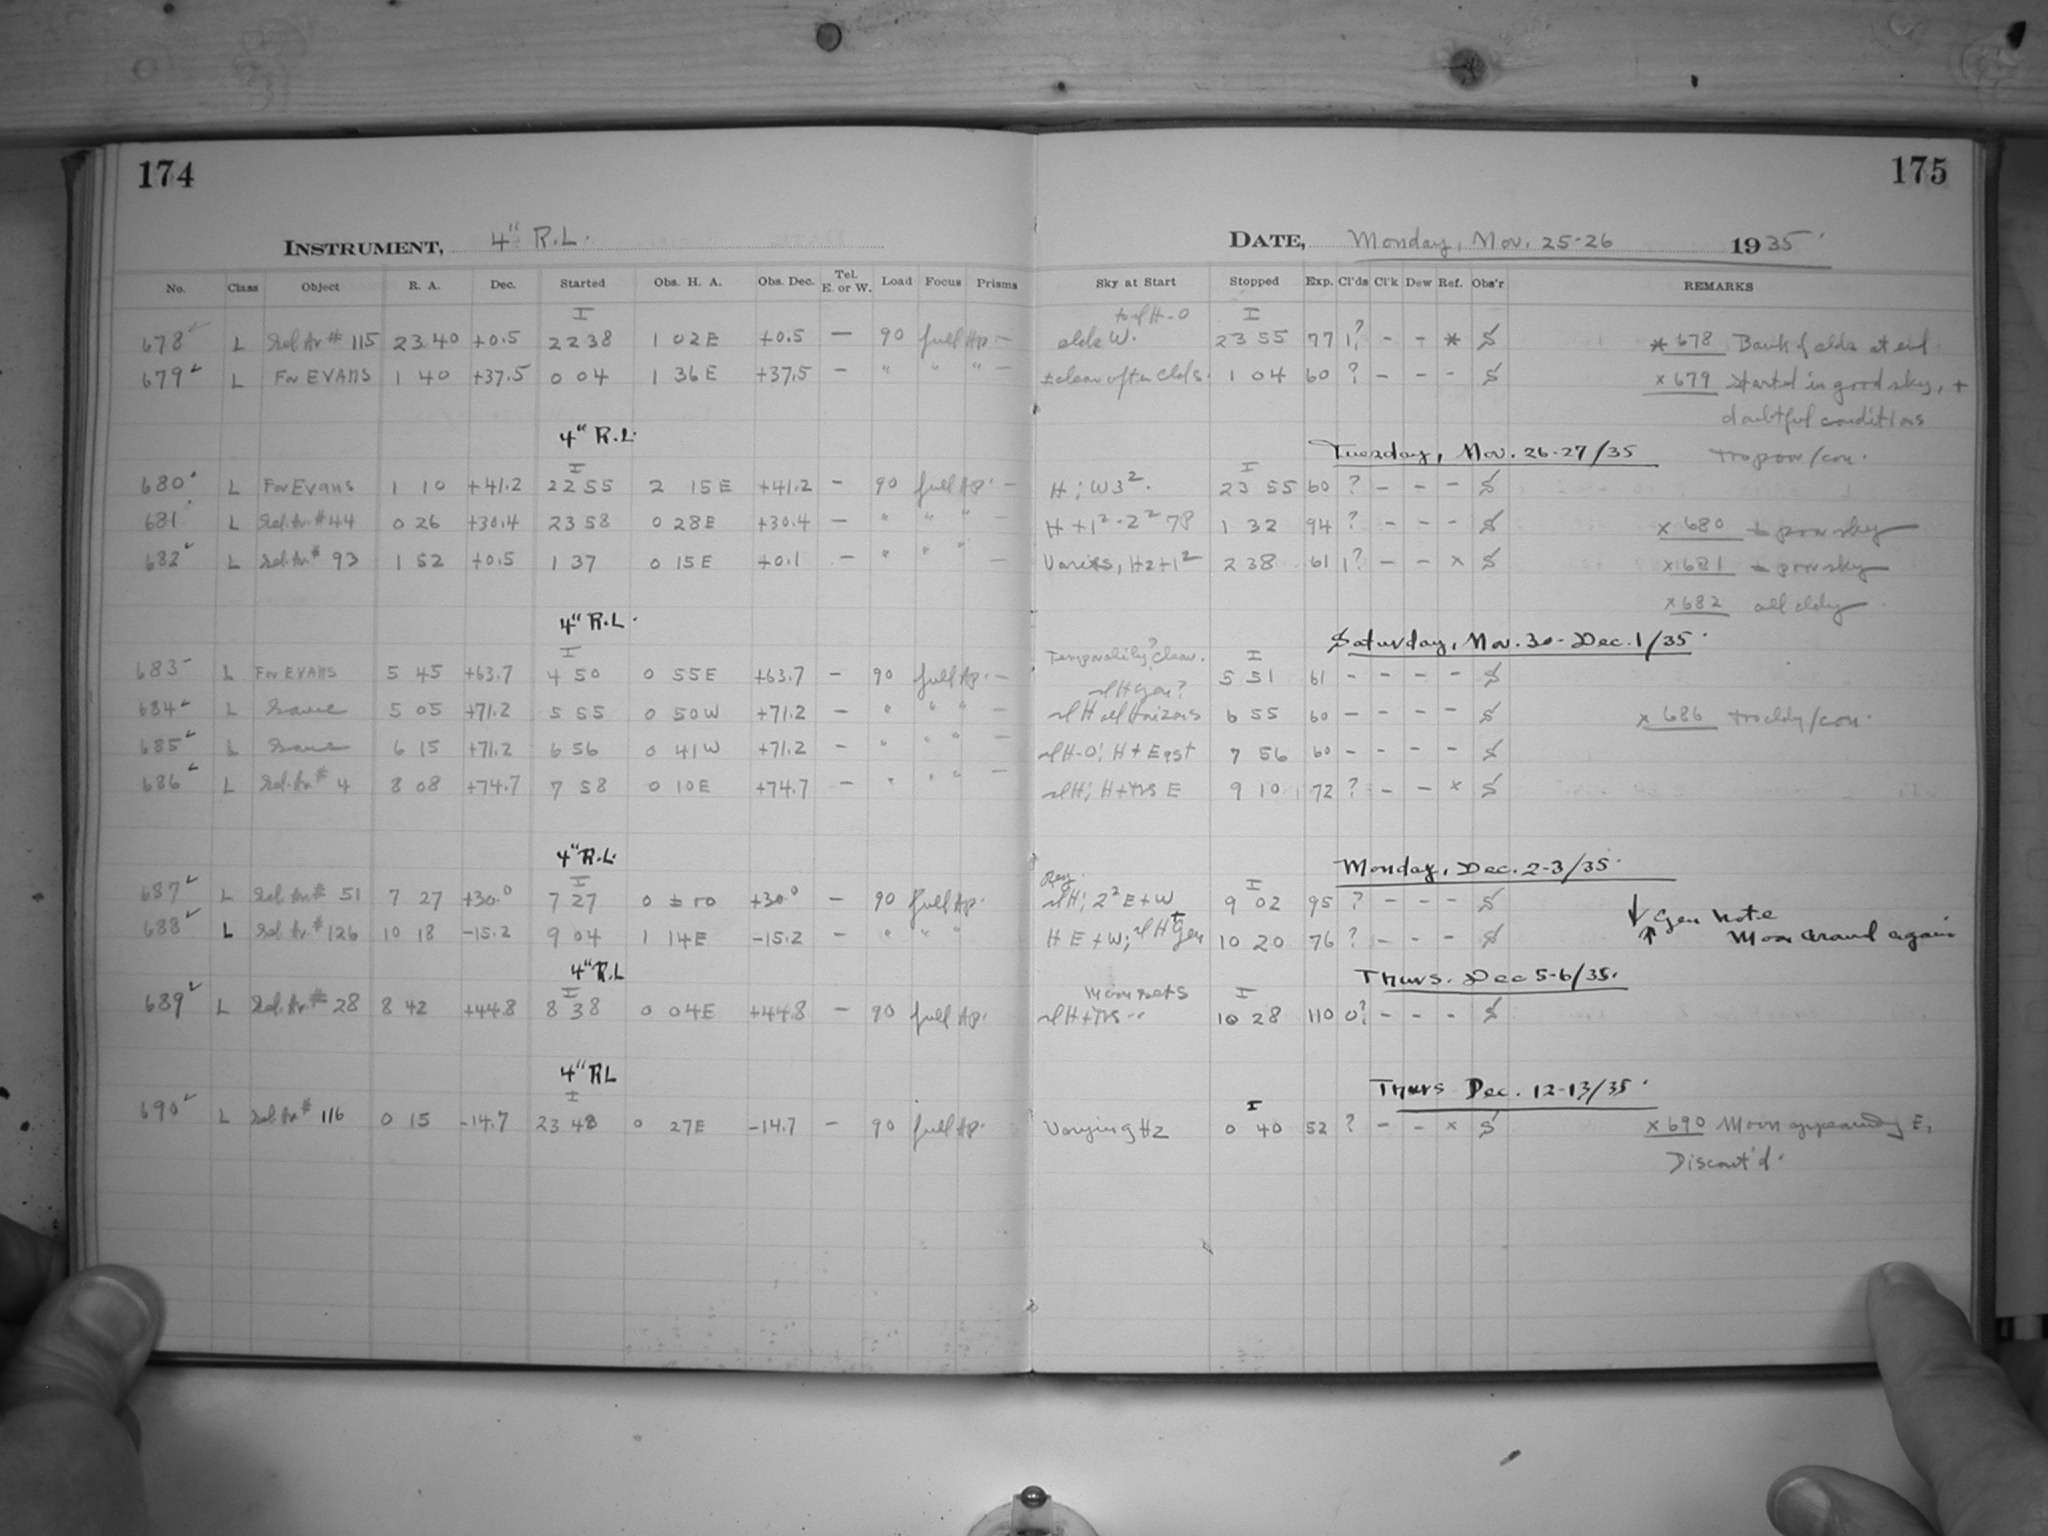 174
175
INSTRUMENT, 4" R.L.
DATE, Monday, Nov. 25-26 1935
No. Class Object R. A. Dec. Started Obs. H. A. Obs. Dec. Tel. E. or W. Load Focus Prisms Sky at Start Stopped Exp. Cl'ds Cl'k Dew Ref. Obs'r REMARKS
I I
678 L Sel. Ar # 115 23 40 +0.5 22 38 1 02 E +0.5 — 90 full Ap. — clds W. 23 55 77 1? - - * S * 678 Bank of clds at end
679 L For EVANS 1 40 +37.5 0 04 1 36 E +37.5 — " " " — ±clear after clds. 1 04 60 ? - - - S x 679 Started in good sky, +
doubtful conditions
4" R.L. Tuesday, Nov. 26-27/35
I I
680 L For Evans 1 10 +41.2 22 55 2 15 E +41.2 — 90 full Ap. — H; W3². 23 55 60 ? - - - S
681 L Sel. Ar. #44 0 26 +30.4 23 58 0 28 E +30.4 — " " " — 1 32 94 ? - - - S x 680 ± poor sky
682 L Sel. Ar # 93 1 52 +0.5 1 37 0 15 E +0.1 — " " " — Varies, H2+1² 2 38 61 1? - - x S x 681 ± poor sky
x 682 all cldy
4" R.L. Saturday, Nov. 30 - Dec. 1/35
I Temporarily? Clear. I
683 L For EVANS 5 45 +63.7 4 50 0 55 E +63.7 — 90 full Ap. — 5 51 61 - - - - S
684 L Same 5 05 +71.2 5 55 0 50 W +71.2 — " " " — slH all horizons 6 55 60 - - - - S x 686 too cldy/con.
685 L Same 6 15 +71.2 6 56 0 41 W +71.2 — " " " — slH-0; H+ East 7 56 60 - - - - S
686 L Sel. Ar # 4 8 08 +74.7 7 58 0 10 E +74.7 — " " " — slH; H+ E 9 10 72 ? - - x S
4" R.L. Monday, Dec. 2-3/35
I I
687 L Sel. Ar # 51 7 27 +30.0 7 27 0 ± 00 +30.0 — 90 full Ap. slH; 2² E+W 9 02 95 ? - - - S ↓ Gen Note
688 L Sel. Ar. # 126 10 18 -15.2 9 04 1 14 E -15.2 — " " " H E + W; slH Gen 10 20 76 ? - - - S ↑ Moon around again
4" R.L Thurs. Dec 5-6/35.
I Moon sets I
689 L Sel. Ar # 28 8 42 +44.8 8 38 0 04 E +44.8 — 90 full Ap. 10 28 110 0? - - - S
4" RL Thurs Dec. 12-13/35.
I I
690 L Sel. Ar # 116 0 15 -14.7 23 48 0 27 E -14.7 — 90 full Ap. Varying H2 0 40 52 ? - - x S x 690 Moon appearing E,
Discont'd.